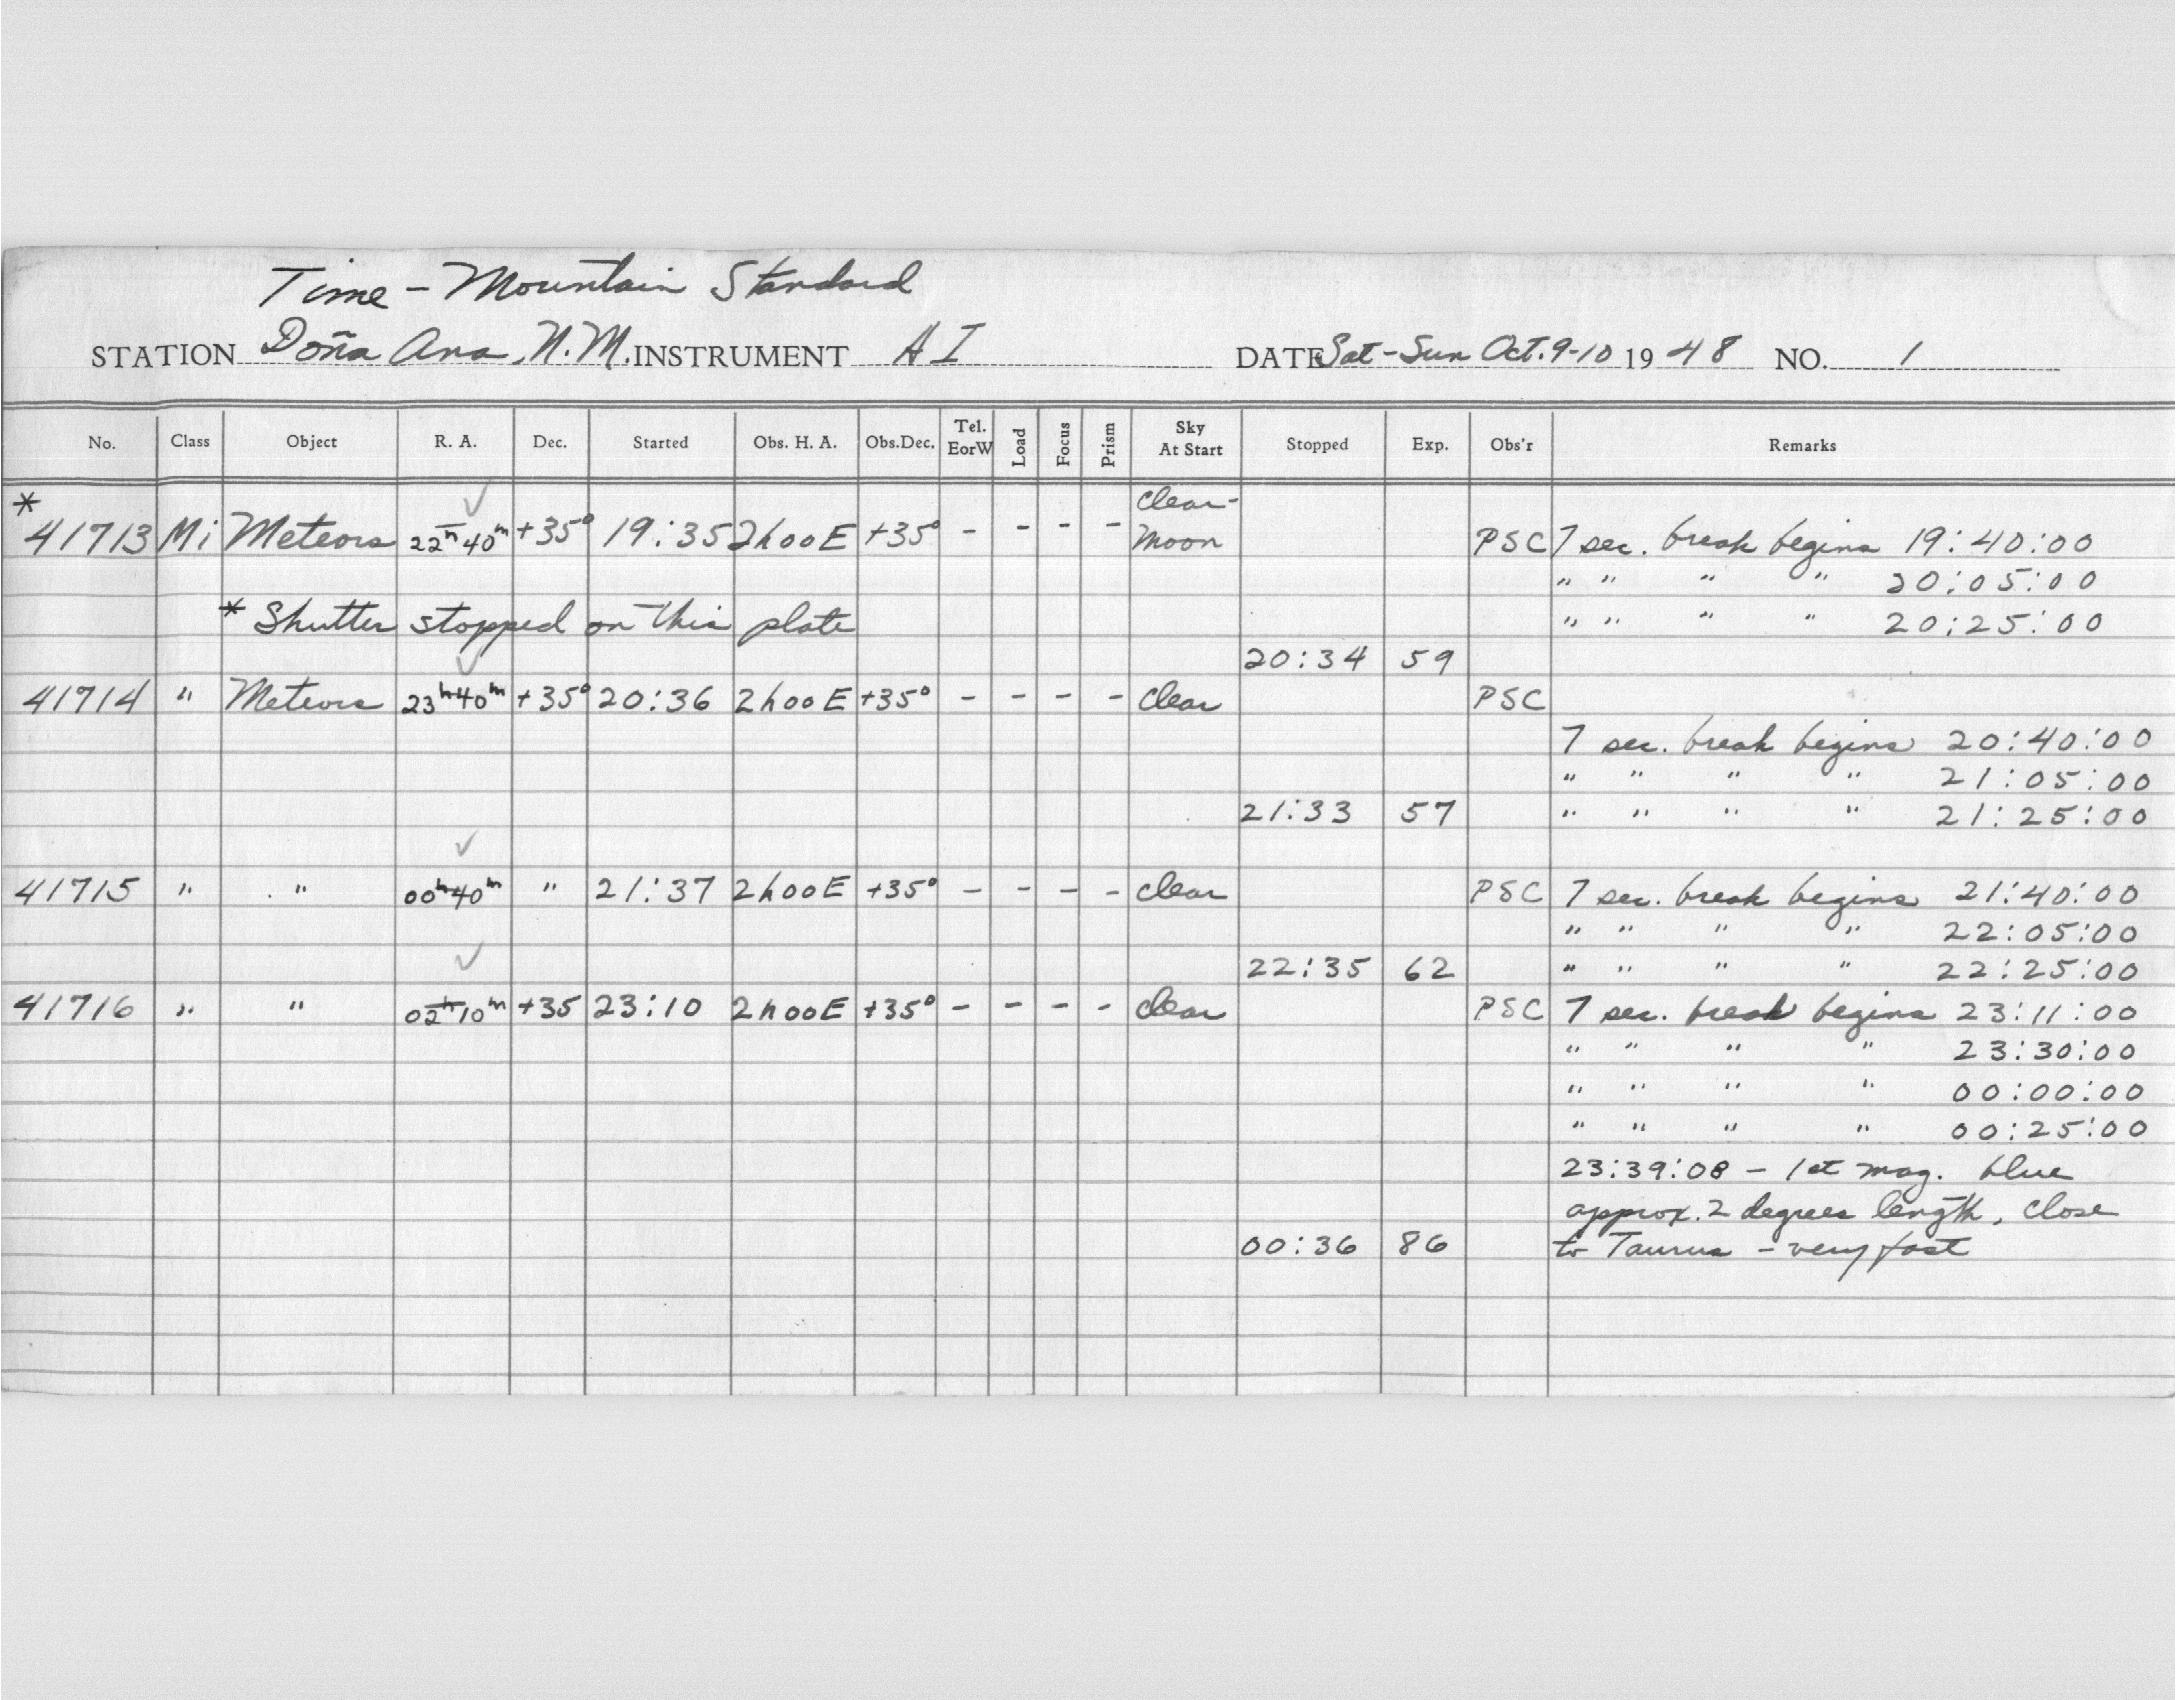 Time - Mountain Standard
STATION Doña Ana, N.M. INSTRUMENT AI DATE Sat-Sun Oct. 9-10 1948 NO. 1
No. Class Object R. A. Dec. Started Obs. H. A. Obs.Dec. Tel. EorW Load Focus Prism Sky At Start Stopped Exp. Obs'r Remarks
* ✓ clear-
41713 Mi Meteors 22h 40m +35° 19:35 2h00E +35° - - - - moon PSC 7 sec. break begins 19:40:00
" " " " 20:05:00
* Shutter stopped on this plate " " " " 20:25:00
✓ 20:34 59
41714 " Meteors 23h40m +35° 20:36 2h00E +35° - - - - clear PSC
7 sec. break begins 20:40:00
" " " " 21:05:00
21:33 57 " " " " 21:25:00
✓
41715 " " 00h40m " 21:37 2h00E +35° - - - - clear PSC 7 sec. break begins 21:40:00
" " " " 22:05:00
✓ 22:35 62 " " " " 22:25:00
41716 " " 02h10m +35 23:10 2h00E +35° - - - - clear PSC 7 sec. break begins 23:11:00
" " " " 23:30:00
" " " " 00:00:00
" " " " 00:25:00
23:39:08 - 1st mag. blue
approx. 2 degrees length, close
00:36 86 to Taurus - very fast